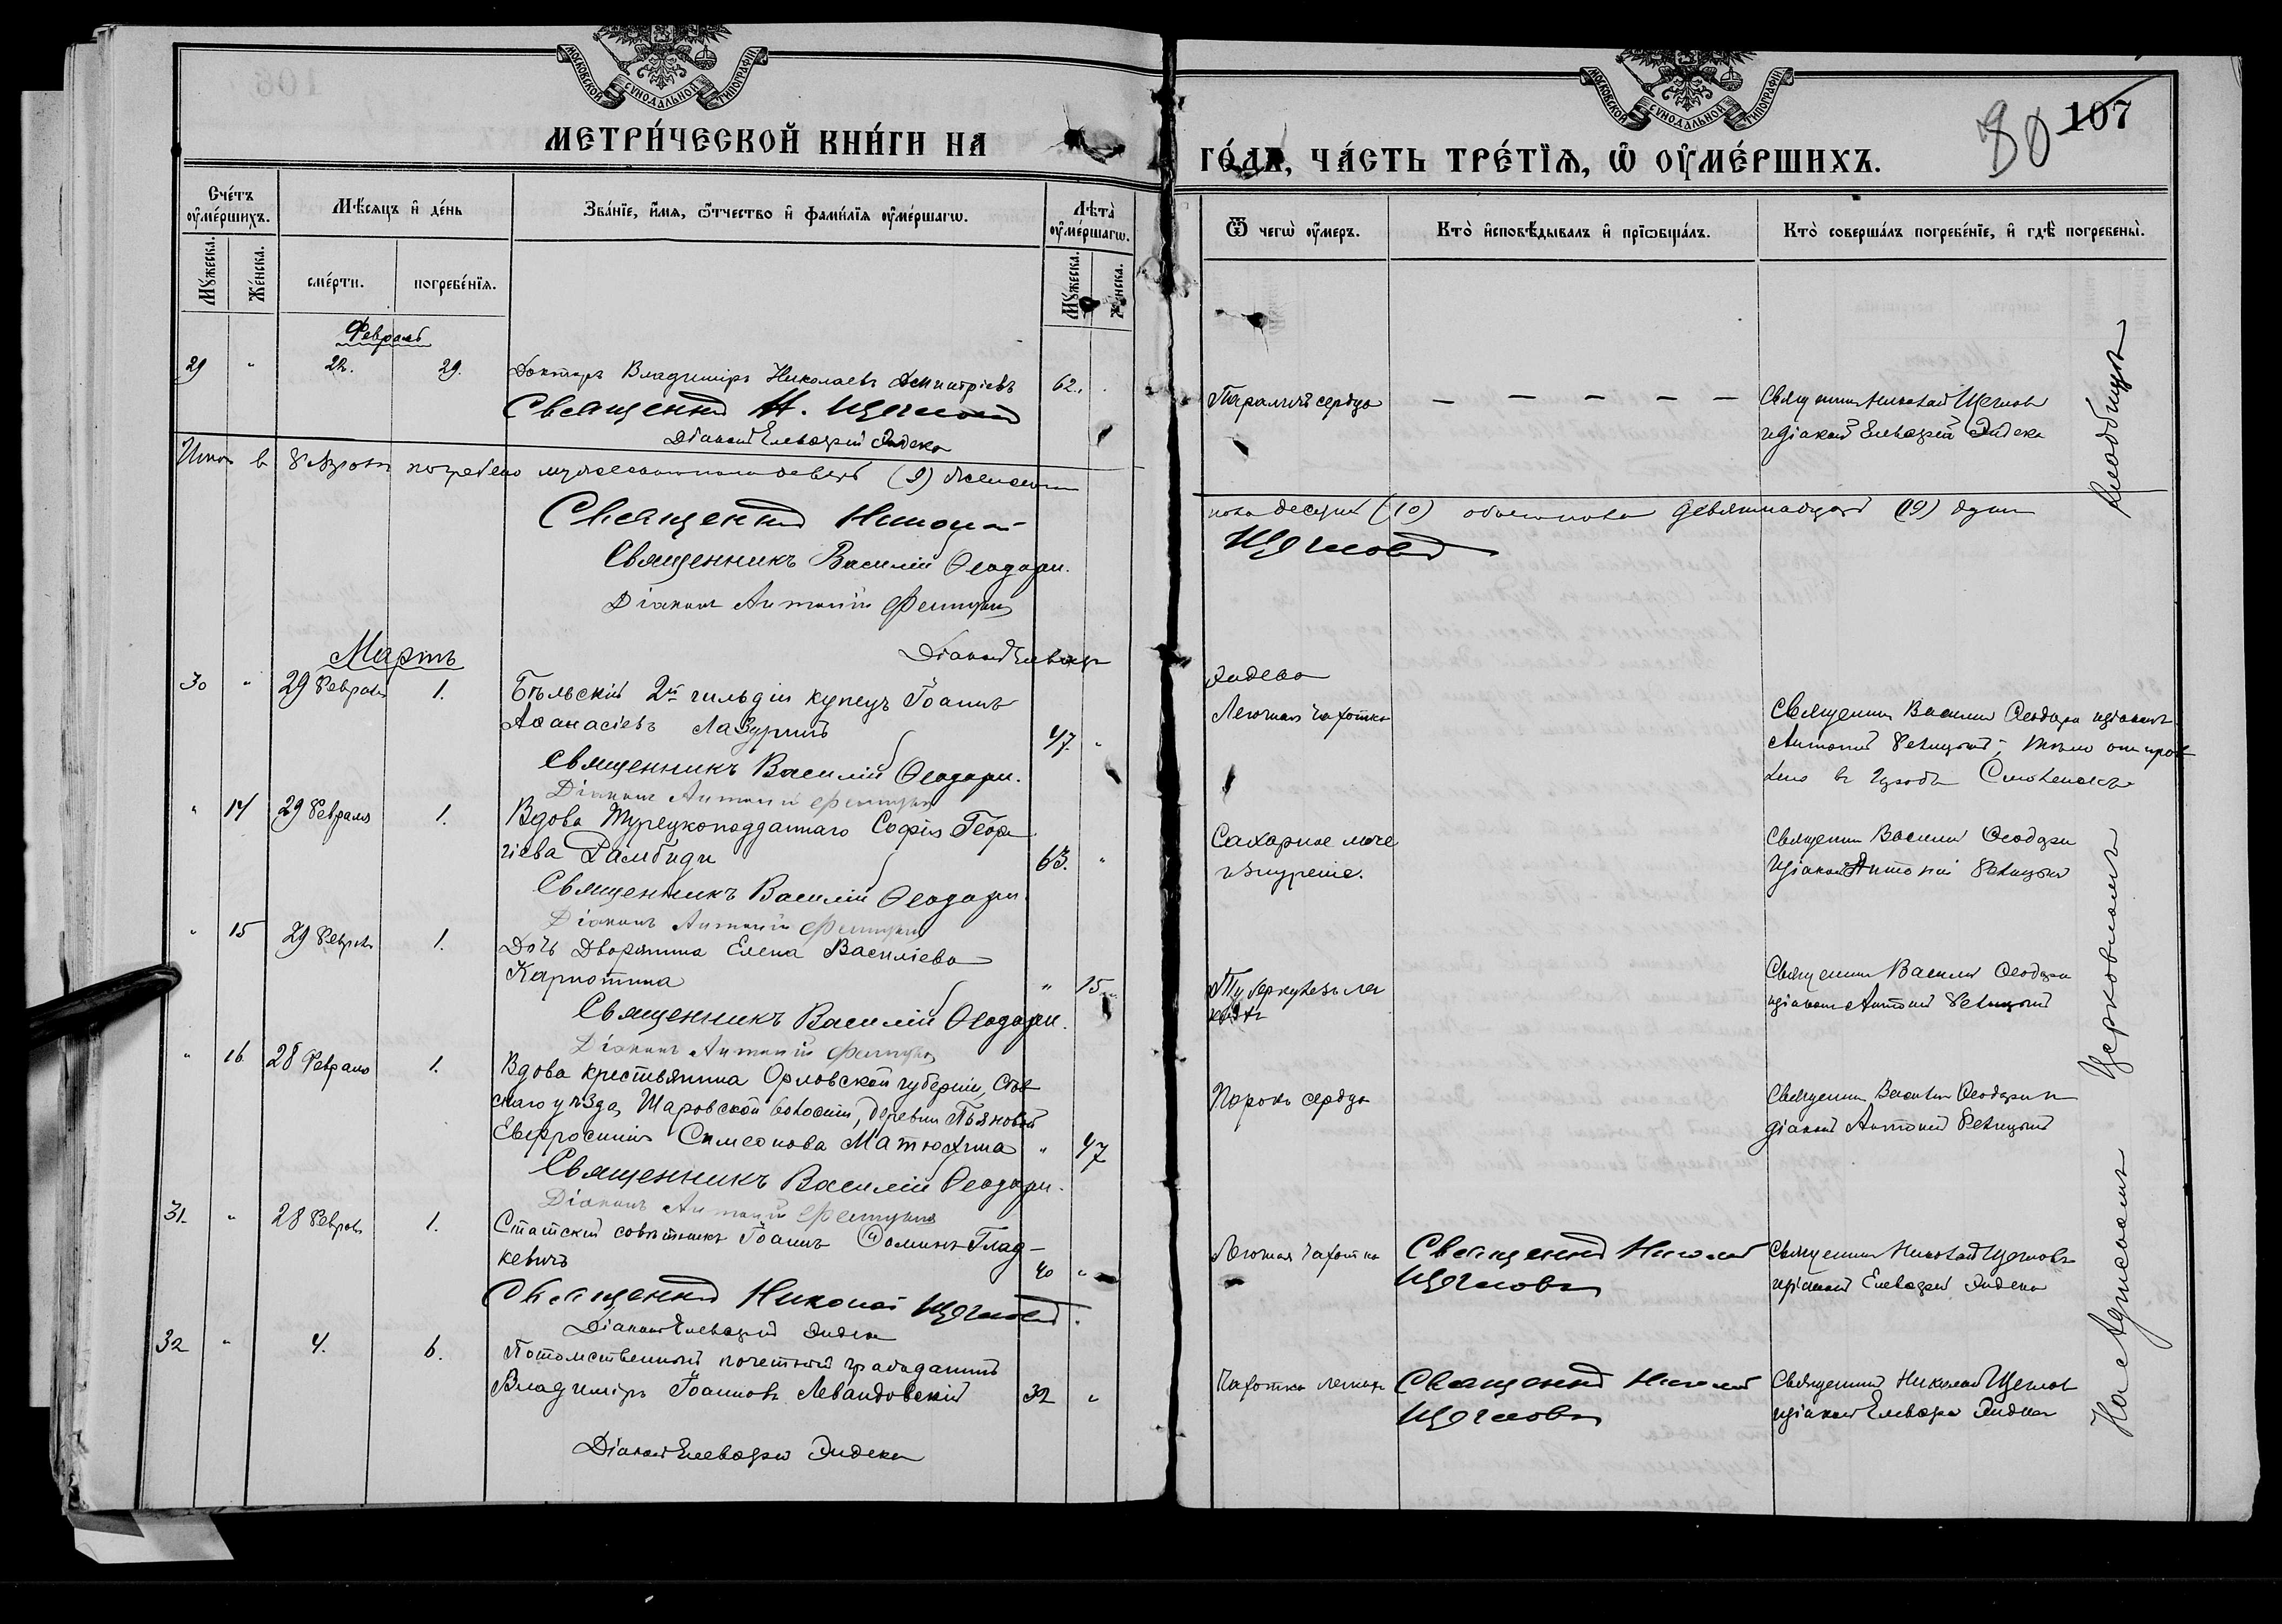 МОСКОВСКОЙ СѴНОДАЛЬНОЙ ТИПОГРАФІИ
МЕТРИ́ЧЕСКОЙ КНИ́ГИ НА
Сче́тъ ᲂу҆ме́ршихъ.
Мѣ́сяцъ и҆ де́нь
Зва́нїе, и҆́мя, ѻ҆́тчество и҆ фами́лїя ᲂу҆ме́ршагѡ.
Лѣта̀ ᲂу҆ме́ршагѡ.
Мꙋ́жеска.
Же́нска.
сме́рти.
погребе́нїя.
Мꙋ́жеска.
Же́нска.
Февраль
29 " 22. 29. Докторъ Владиміръ Николаевъ Дмитріевъ 62.
Священникъ Н. Щегловъ
Діаконъ Елевѳерій Эндека
Итого въ Февралѣ погребено мужескаго пола девять (9) женска
Священникъ Николай
Священникъ Василій Ѳеодори.
Діаконъ Антоній Феницкій
Діаконъ Елевѳер
Мартъ
30 " 29 Февраля 1. Бѣльскій 2й гильдіи купецъ Іоаннъ
Аѳанасіевъ Лазуринъ 47. "
Священникъ Василій Ѳеодори.
Діаконъ Антоній Феницкій
" 14 29 Февраля 1. Вдова Турецкоподданнаго Софія Геор
гіева Рамбиди 63. "
Священникъ Василій Ѳеодори.
Діаконъ Антоній Феницкій
" 15 29 Февраля 1. Дочь Дворянина Елена Василіева
Карпотина " 15
Священникъ Василій Ѳеодори.
Діаконъ Антоній Феницкій
" 16 28 Февраля 1. Вдова крестьянина Орловской губерніи, Сѣв
скаго уѣзда, Шаровской волости, деревни Пьяновой
Евфросинія Симеонова Матюхина " 47
Священникъ Василій Ѳеодори.
Діаконъ Антоній Феницкій
31. " 28 Февраля 1. Статскій совѣтникъ Іоаннъ Ѳоминъ Глад-
кевичъ 40 "
Священникъ Николай Щегловъ.
Діаконъ Елевѳерій Эндека
32 " 4. 6. Потомственный почетный гражданинъ
Владиміръ Іоанновъ Левандовскій 32 "
Діаконъ Елевѳерій Эндека
МОСКОВСКОЙ СѴНОДАЛЬНОЙ ТИПОГРАФІИ
80 107
ГО́ДЪ, ЧА́СТЬ ТРЕ́ТЇѦ, Ѡ҆ ОУ҆МЕ́РШИХЪ.
Ѿ чегѡ̀ ᲂу҆́меръ.
Кто̀ и҆сповѣ́дывалъ и҆ прїѡбща́лъ.
Кто̀ соверша́лъ погребе́нїе, и҆ гдѣ̀ погребены̀.
Параличъ сердца — — — — — — Священникъ Николай Щегловъ
и діаконъ Елевѳерій Эндека
пола десять (10) обоего пола девятнадцать (19) душъ
Щегловъ
Эндека
Легочная чахотка Священникъ Василій Ѳеодори и діаконъ
Антоній Феницкій; тѣло отправ
лено въ городъ Смоленскъ
Сахарное моче Священникъ Василій Ѳеодори
изнуреніе. и діаконъ Антоній Феницкій
Туберкулезъ лег Священникъ Василій Ѳеодори
кихъ и діаконъ Антоній Феницкій
Порокъ сердца Священникъ Василій Ѳеодори и
діаконъ Антоній Феницкій
Легочная чахотка Священникъ Николай Священникъ Николай Щегловъ
Щегловъ и діаконъ Елевѳерій Эндека
Чахотка легкихъ Священникъ Николай Священникъ Николай Щегловъ
Щегловъ и діаконъ Елевѳерій Эндека
На Аутскомъ Церковномъ кладбищѣ